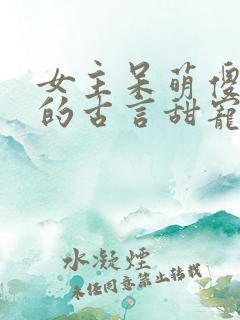 女主呆萌傻
的古言甜寵
水凝煙
未经同意禁止转载